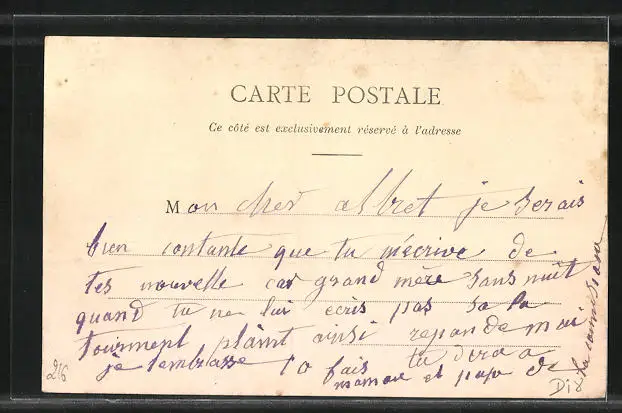 CARTE POSTALE
Ce côté est exclusivement réservé à l'adresse
Mon cher albret je serais
bien contante que tu mécrive de
tes nouvelle car grand mère sans nuit
quand tu ne lui ecris pas sa la
tourment plaint ainsi repande moi
je tembrasse 10 fais tu dira a
maman et papa de
la
216
Dix